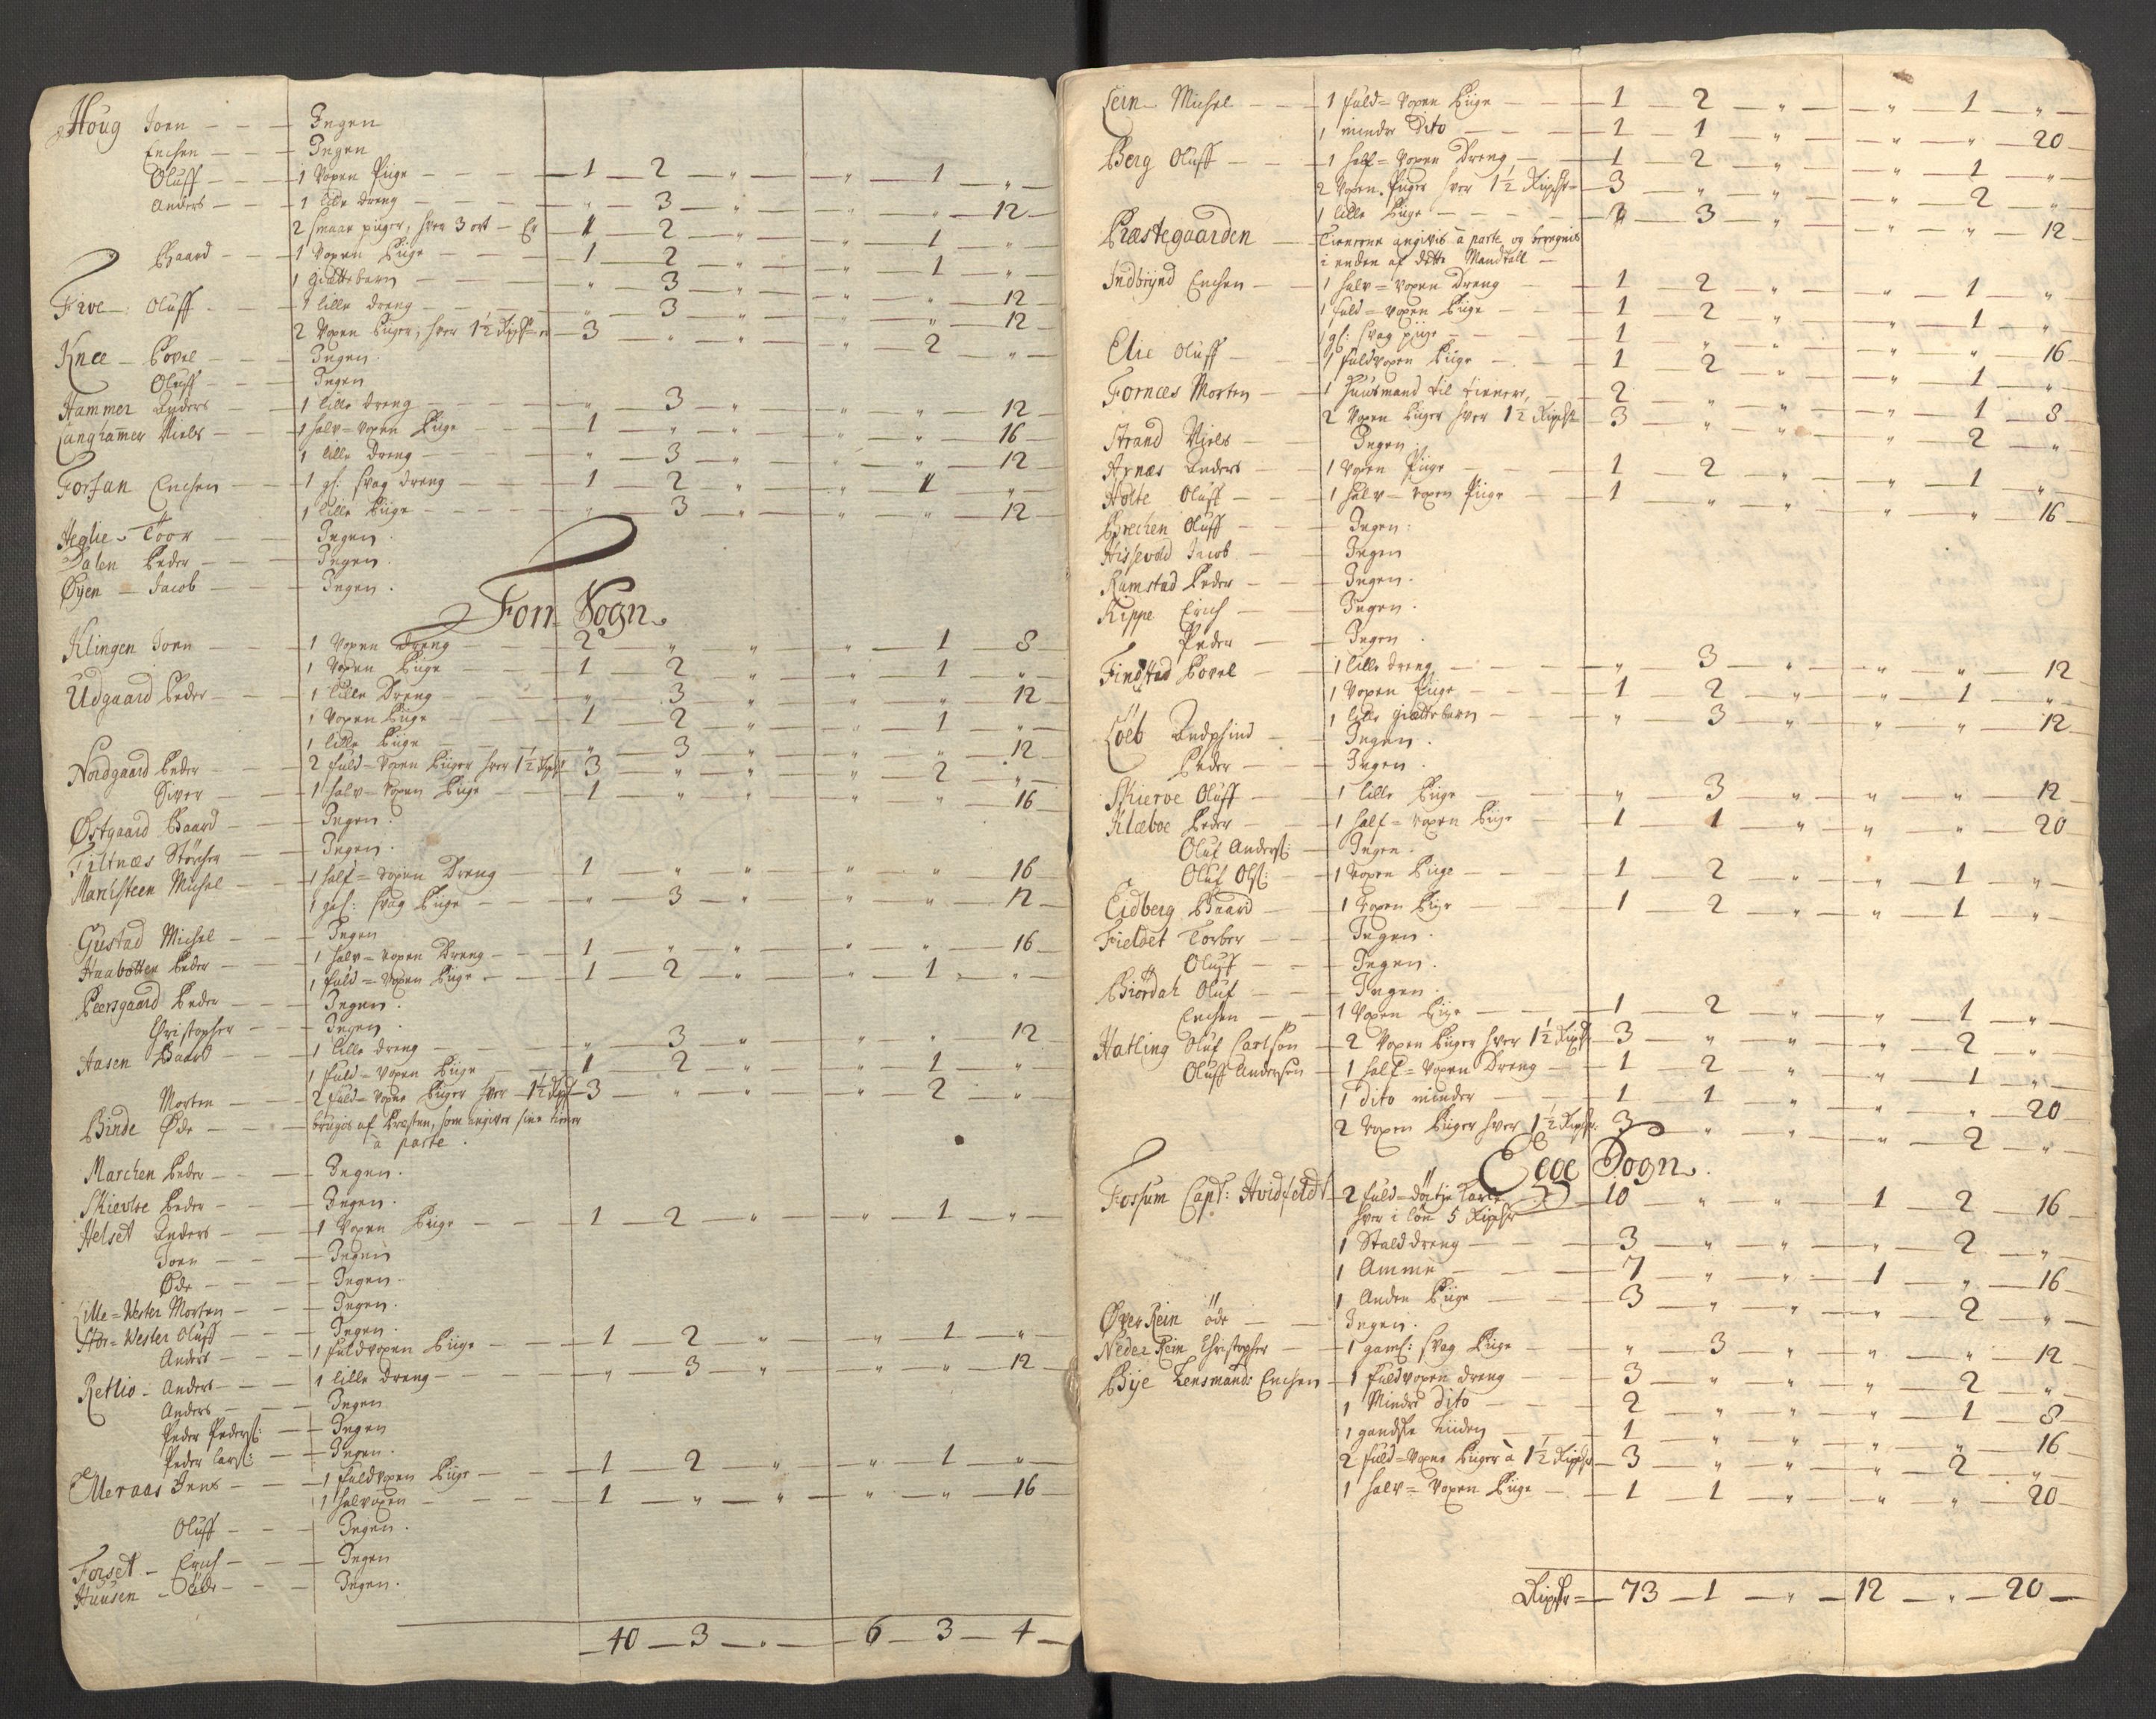 Houg Joen — — — Ingen
Enchen — — — Ingen
Oluff — — — 1 Voxen Piige — — — 1 — 2 — „ — „ — 1 — „ —
Anders — — — 1 lille dreng — — — „ — 3 — „ — „ — „ — 12 —
2 smaae piiger, hver 3 ort — Er 1 — 2 — „ — „ — 1 — „ —
Baard — — — 1 Voxen Piige — — — 1 — 2 — „ — „ — 1 — „ —
1 giættebarn — — — „ — 3 — „ — „ — „ — 12 —
Five — Oluff — — 1 lille dreng — — — „ — 3 — „ — „ — „ — 12 —
2 Voxen Piiger, hver 1½ — 3 — „ — „ — „ — 2 — „ —
Knee — Povel — — Ingen
Oluff — — — Ingen
Hammer Anders — — 1 lille dreng — — — „ — 3 — „ — „ — „ — 12 —
Langhammer Niels — — 1 halv=voxen Piige — — 1 — „ — „ — „ — „ — 16 —
1 lille dreng — — — „ — 3 — „ — „ — „ — 12 —
Forfan Enchen — — 1 gl: svag dreng — — 1 — 2 — „ — „ — 1 — „ —
1 lille Piige — — — „ — 3 — „ — „ — „ — 12 —
Heglie — Toor — — Ingen
Dalen Peder — — Ingen.
Øyen — Jacob — — Ingen.
Forr Sogn
Klingen Joen — — 1 Voxen dreng — — 2 — „ — „ — „ — 1 — 8
1 Voxen Piige — — 1 — 2 — „ — „ — 1 — „
Udgaard Peder — — 1 lille Dreng — — „ — 3 — „ — „ — „ — 12
1 Voxen Piige — — 1 — 2 — „ — „ — 1 — „
1 lille Piige — — „ — 3 — „ — „ — „ — 12
Nordgaard Peder — — 2 fuld=Voxen Piiger hver 1½ — 3 — „ — „ — „ — 2 — „
Siver — — 1 halv=voxen Piige — — 1 — „ — „ — „ — „ — 16
Østgaard Baard — — Ingen.
Tiltnæs Størcher — — Ingen.
Marchsteen Michel — — 1 half=voxen Dreng — — 1 — „ — „ — „ — „ — 16
1 gal: svag Piige — — „ — 3 — „ — „ — „ — 12
Gustad Michel — — Ingen
Haabotten Peder — — 1 halv=voxen Dreng — — 1 — „ — „ — „ — „ — 16
1 fuld=voxen Piige — — 1 — 2 — „ — „ — 1 — „
Peersgaard Peder — — Ingen.
Christopher — — Ingen.
Aasen Baard — — 1 lille dreng — — „ — 3 — „ — „ — „ — 12
1 fuld=voxen Piige — — 1 — 2 — „ — „ — 1 — „
Morten — — 2 fuld=voxne Piiger hver 1½ — 3 — „ — „ — „ — 2 — „
Binde Øde — — brugis af Præsten, som angiver sine tiener
à parte.
Marchen Peder — — Ingen.
Skievlse Peder — — Ingen.
Helset Anders — — 1 Voxen Piige — — 1 — 2 — „ — „ — 1 — „
Joen — — — Ingen
Øde — — — Ingen
Lille=Wester Morten — — Ingen.
Stor=Wester Oluff — — Ingen.
Anders — — 1 fuldvoxen Piige — — 1 — 2 — „ — „ — 1 — „
Retlio — Anders — — 1 lille dreng — — „ — 3 — „ — „ — „ — 12
Anders — — — Ingen
Peder Peders: — Ingen
Peder Lars: — — Ingen.
Elleraas Jens — — 1 fuldvoxen Piige — — 1 — 2 — „ — „ — 1 — „
1 halvoxen — — 1 — „ — „ — „ — „ — 16
Oluff — — — Ingen.
Forset — Erich — — Ingen
Huusen — Øde — — Ingen.
40 — 3 — „ — 6 — 3 — 4
Lein — Michel — — 1 fuld=Voxen Piige — — 1 — 2 — „ — „ — 1 — „
1 mindre Dito — — 1 — 1 — „ — „ — „ — 20
Berg Oluff — — 1 half=Voxen Dreng — — 1 — 2 — „ — „ — 1 — „
2 Voxen Piiger hver 1½ — 3 — „ — „ — „ — 2 — „
1 lille Piige — — „ — 3 — „ — „ — „ — 12
Præstegaarden — Tienerne angivis à parte, og beregnis
i enden af dette Mandtall —
Indbrynd Enchen — — 1 halv=voxen Dreng — — 1 — 2 — „ — „ — 1 — „
1 fuld=voxen Piige — — 1 — 2 — „ — „ — 1 — „
Elie Oluff — — 1 gl: svag piige — — 1 — „ — „ — „ — „ — 16
1 fuldvoxen Piige — — 1 — 2 — „ — „ — 1 — „
Fornæs Morten — — 1 Huusmand til tienere, — 2 — „ — „ — „ — 1 — 8
2 Voxen Piiger hver 1½ — 3 — „ — „ — „ — 2 — „
Strand Niels — — Ingen.
Arnæs Anders — — 1 Voxen Piige — — 1 — 2 — „ — „ — 1 — „
Holte Oluff — — 1 halv=voxen Piige — — 1 — „ — „ — „ — „ — 16
Brechen Oluff — — Ingen:
Hissevold Jacob — — Ingen
Ramstad Peder — — Ingen.
Kippe Erich — — Ingen.
Peder — — Ingen.
Findstad Povel — — 1 lille dreng — — „ — 3 — „ — „ — „ — 12
1 Voxen Piige — — 1 — 2 — „ — „ — 1 — „
1 lille giættebarn — — „ — 3 — „ — „ — „ — 12
Löeb — — Ingen.
Peder — — Ingen.
Skierve Oluff — — 1 lille Piige — — „ — 3 — „ — „ — „ — 12
Klæboe Peder — — 1 half=voxen Piige — — 1 — 1 — „ — „ — „ — 20
Oluf Anders: — Ingen.
Oluf Ols: — 1 Voxen Piige — — 1 — 2 — „ — „ — 1 — „
Eidberg Baard — — 1 Voxen Piige — — 1 — 2 — „ — „ — 1 — „
Fieldet Torber — — Ingen.
Oluff — — Ingen.
Biördal Oluf — — Ingen.
Enchen — — 1 Voxen Piige — — 1 — 2 — „ — „ — 1 — „
Hatling Oluf Carlson — 2 Voxen Piiger hver 1½ — 3 — „ — „ — „ — 2 — „
Oluff Andersøn — 1 half=Voxen Dreng — — 1 — 2 — „ — „ — 1 — „
1 dito minder — — 1 — 1 — „ — „ — „ — 20
2 Voxen Piiger hver 1½ — 3 — „ — „ — „ — 2 — „
Egge Sogn.
Fossum Capt: Hvidfeldt — 2 fuld=döitje karle — 10 — „ — „ — 1 — 2 — 16
hver i løn 5
1 Stalddreng — — 3 — „ — „ — „ — 2 — „
1 Amme — — 7 — „ — „ — 1 — „ — 16
1 Anden Piige — — 3 — „ — „ — „ — 2 — „
Øver Rein öde — — Ingen.
Neder Rein Christopher — — 1 gaml: svag Piige — „ — 3 — „ — „ — „ — 12
Bije Lensmand: Enchen — 1 fuldvoxen dreng — 3 — „ — „ — „ — 2 — „
1 Mindre dito — — 2 — „ — „ — „ — 1 — 8
1 gandske liiden — 1 — „ — „ — „ — „ — 16
2 fuld=voxne Piiger à 1½ — 3 — „ — „ — „ — 2 — „
1 halv=voxen Piige — — 1 — 1 — „ — „ — „ — 20
73 — 1 — „ — 12 — „ — 20